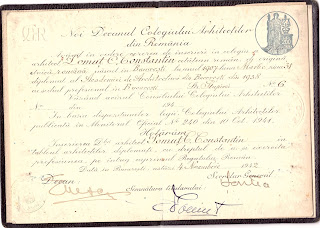 Noi Decanul Colegiului Arhitecților
din România
Având în vedere cererea de înscriere în colegiu a
arhitect Pomul C. Constantin cetățean român, de origină
născut în București în anul 1907 luna Martie ziua 31
diplomat al Academiei de Arhitectură din București din 1938
cu sediul profesional în București No 6
Văzând avizul Comitetului Colegiului Arhitecților
No din 194
În baza dispozițiunilor legii Colegiului Arhitecților
publicată în Monitorul Oficial No 240 din 10 Oct. 1941.
Hotărâm
Înscrierea D-lui arhitect Pomul C. Constantin în
tabloul arhitecților diplomați cu dreptul de a-și exercita
profesiunea, pe întreg cuprinsul Regatului Român.
Dată în București, astăzi 4 Noemvrie 1942
Decan Secretar General
Semnătura titularului